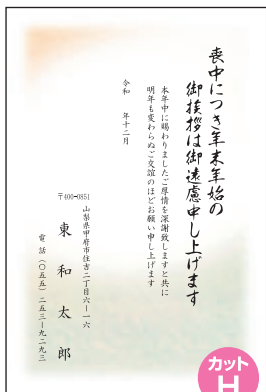 喪中につき年末年始の
御挨拶は御遠慮申し上げます
本年中に賜わりましたご厚情を深謝致しますと共に
明年も変わらぬご交誼のほどお願い申し上げます
令和　年十二月
〒400-0851
山梨県甲府市住吉二丁目六－一六
東和太郎
電話（〇五五）二五三－九二九三
カット
H